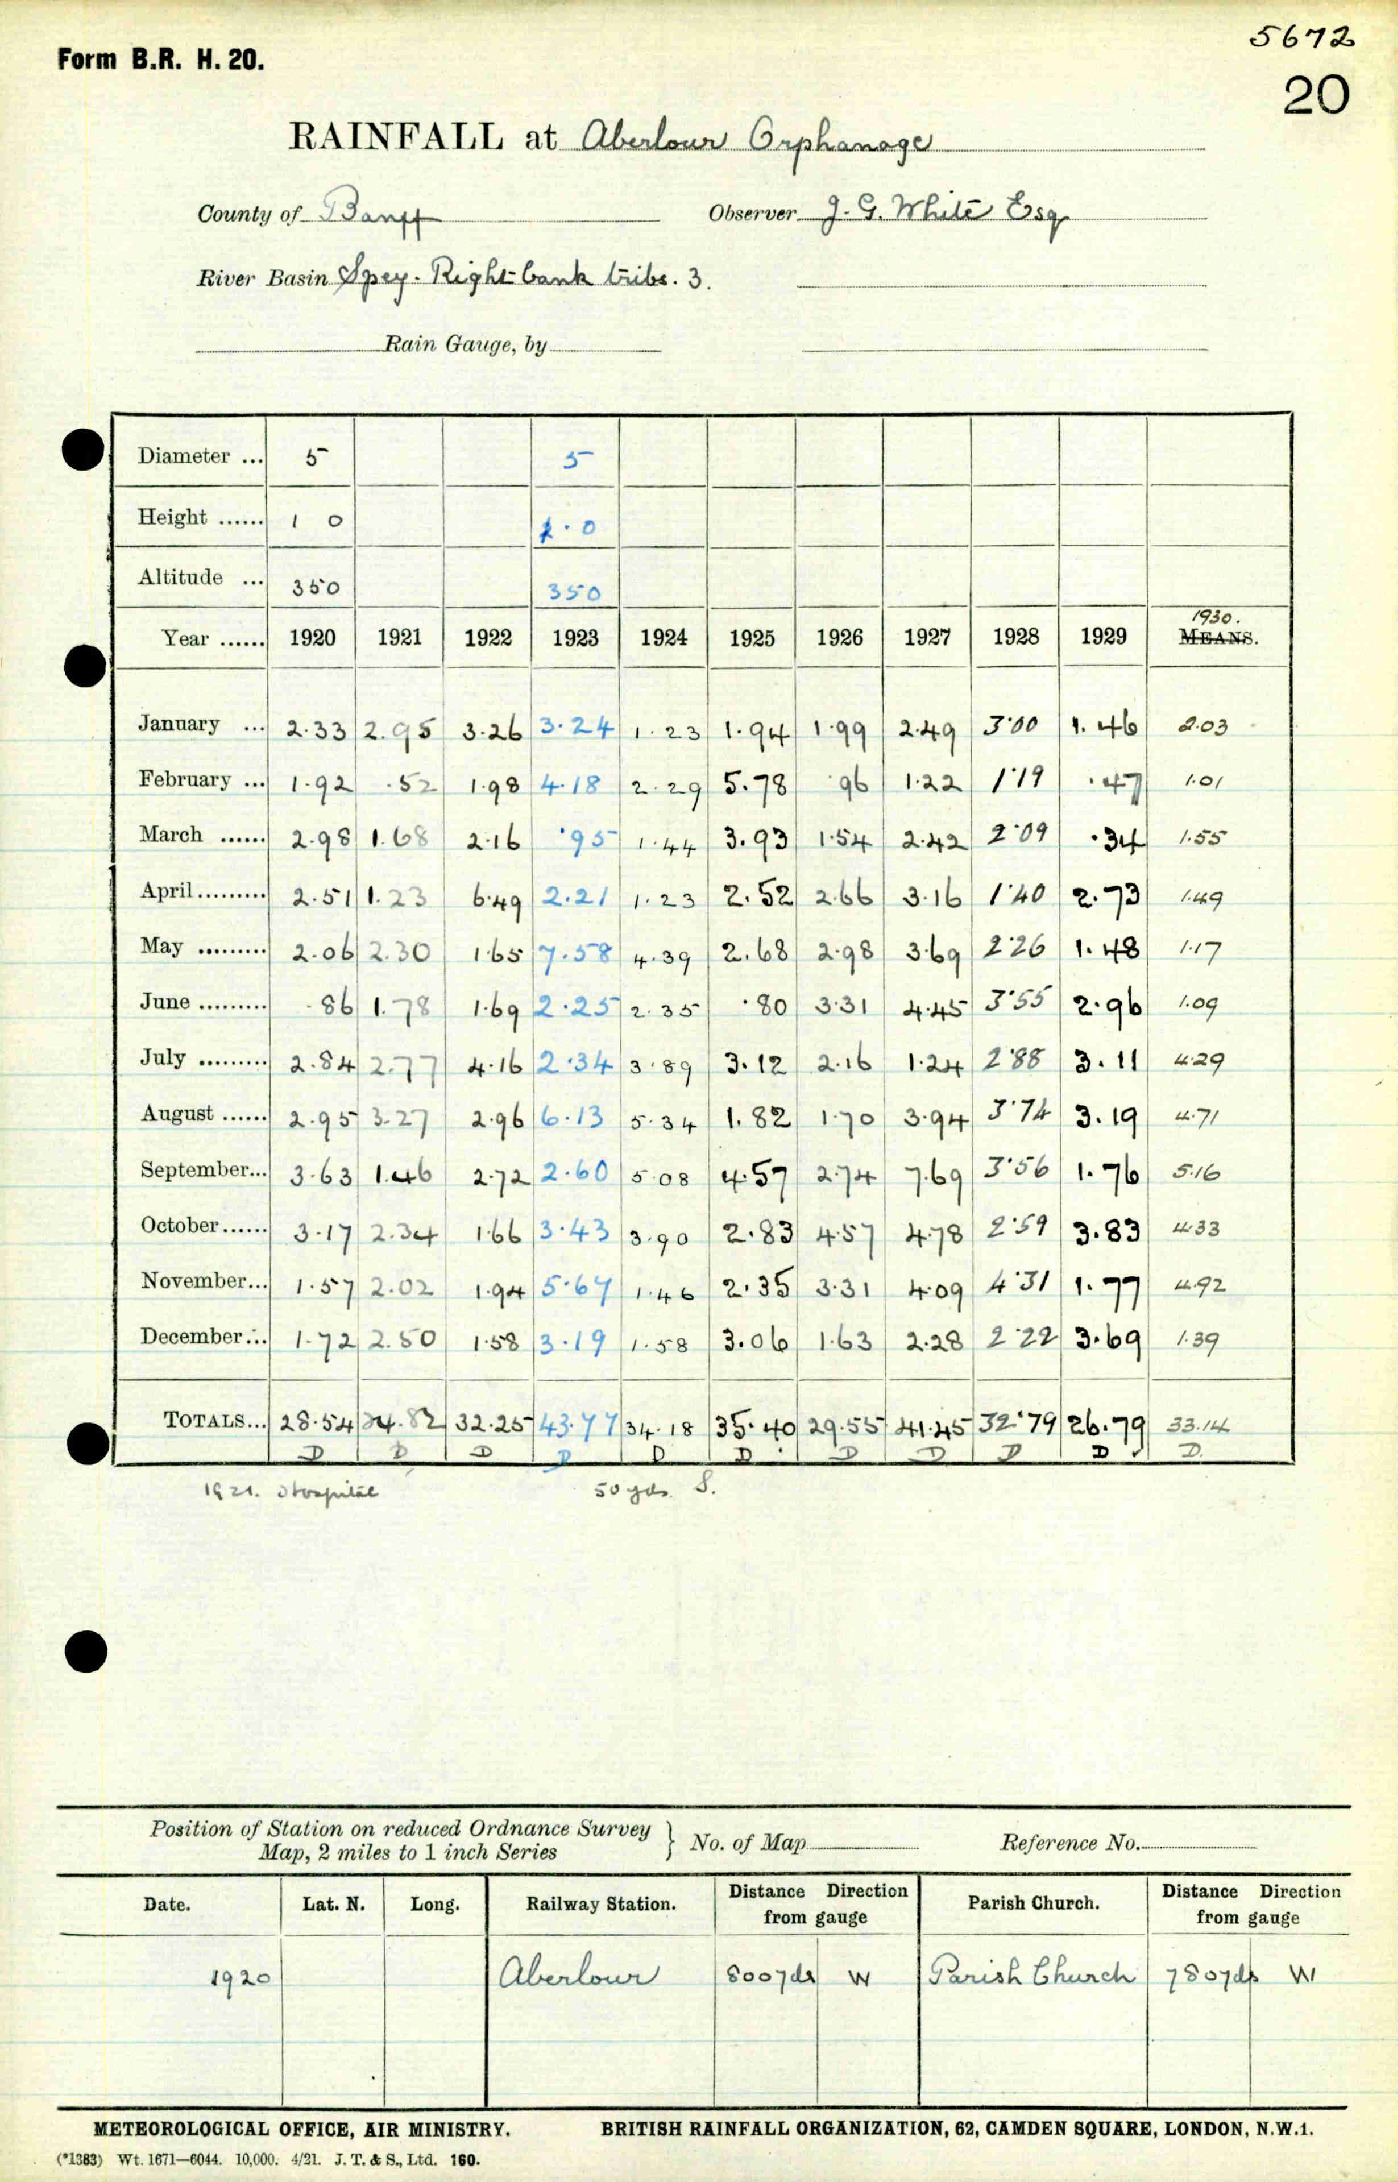 5672
Form B.R. H. 20.
20
RAINFALL at Aberlour Orphanage
County of Banff Observer J. G. White Esq
River Basin Spey. Right bank tribs. 3.
Rain Gauge, by
Diameter ... 5 5
Height ...... 1 0 1.0
Altitude ... 350 350
1930.
Year ...... 1920 1921 1922 1923 1924 1925 1926 1927 1928 1929 MEANS.
January ... 2.33 2.95 3.26 3.24 1.23 1.94 1.99 2.49 3.00 1.46 2.03
February ... 1.92 .52 1.98 4.18 2.29 5.78 .96 1.22 1.19 .47 1.01
March ...... 2.98 1.68 2.16 .95 1.44 3.93 1.54 2.42 2.09 .34 1.55
April......... 2.51 1.23 6.49 2.21 1.23 2.52 2.66 3.16 1.40 2.73 1.49
May ......... 2.06 2.30 1.65 7.58 4.39 2.68 2.98 3.69 2.26 1.48 1.17
June ......... .86 1.78 1.69 2.25 2.35 .80 3.31 4.45 3.55 2.96 1.09
July ......... 2.84 2.77 4.16 2.34 3.89 3.12 2.16 1.24 2.88 3.11 4.29
August ...... 2.95 3.27 2.96 6.13 5.34 1.82 1.70 3.94 3.74 3.19 4.71
September... 3.63 1.46 2.72 2.60 5.08 4.57 2.74 7.69 3.56 1.76 5.16
October...... 3.17 2.34 1.66 3.43 3.90 2.83 4.57 4.78 2.59 3.83 4.33
November... 1.57 2.02 1.94 5.67 1.46 2.35 3.31 4.09 4.31 1.77 4.92
December... 1.72 2.50 1.58 3.19 1.58 3.06 1.63 2.28 2.22 3.69 1.39
TOTALS... 28.54 24.82 32.25 43.77 34.18 35.40 29.55 41.45 32.79 26.79 33.14
D D D D D D D D D D D.
1921. Hospital 50 yds S.
Position of Station on reduced Ordnance Survey
Map, 2 miles to 1 inch Series } No. of Map Reference No.
Date. Lat. N. Long. Railway Station. Distance Direction from gauge Parish Church. Distance Direction from gauge
1920 Aberlour 800yds W Parish Church 780yds W
METEOROLOGICAL OFFICE, AIR MINISTRY. BRITISH RAINFALL ORGANIZATION, 62, CAMDEN SQUARE, LONDON, N.W.1.
(*1383) Wt. 1671—6044. 10,000. 4/21. J. T. & S., Ltd. 160.